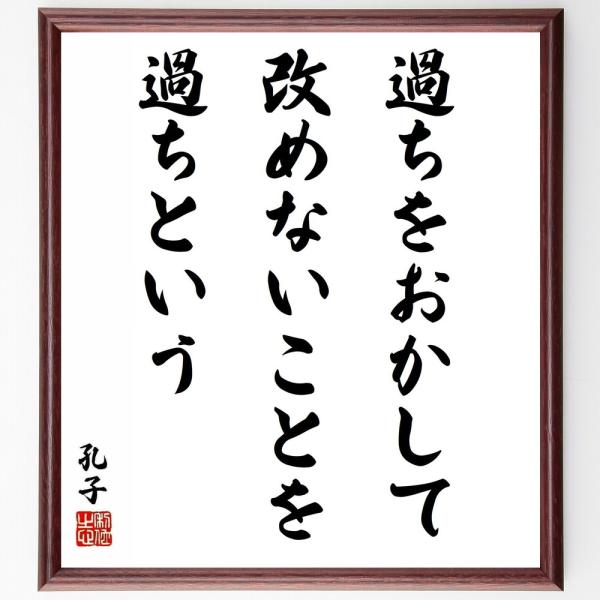 過ちをおかして
改めないことを
過ちという
孔子